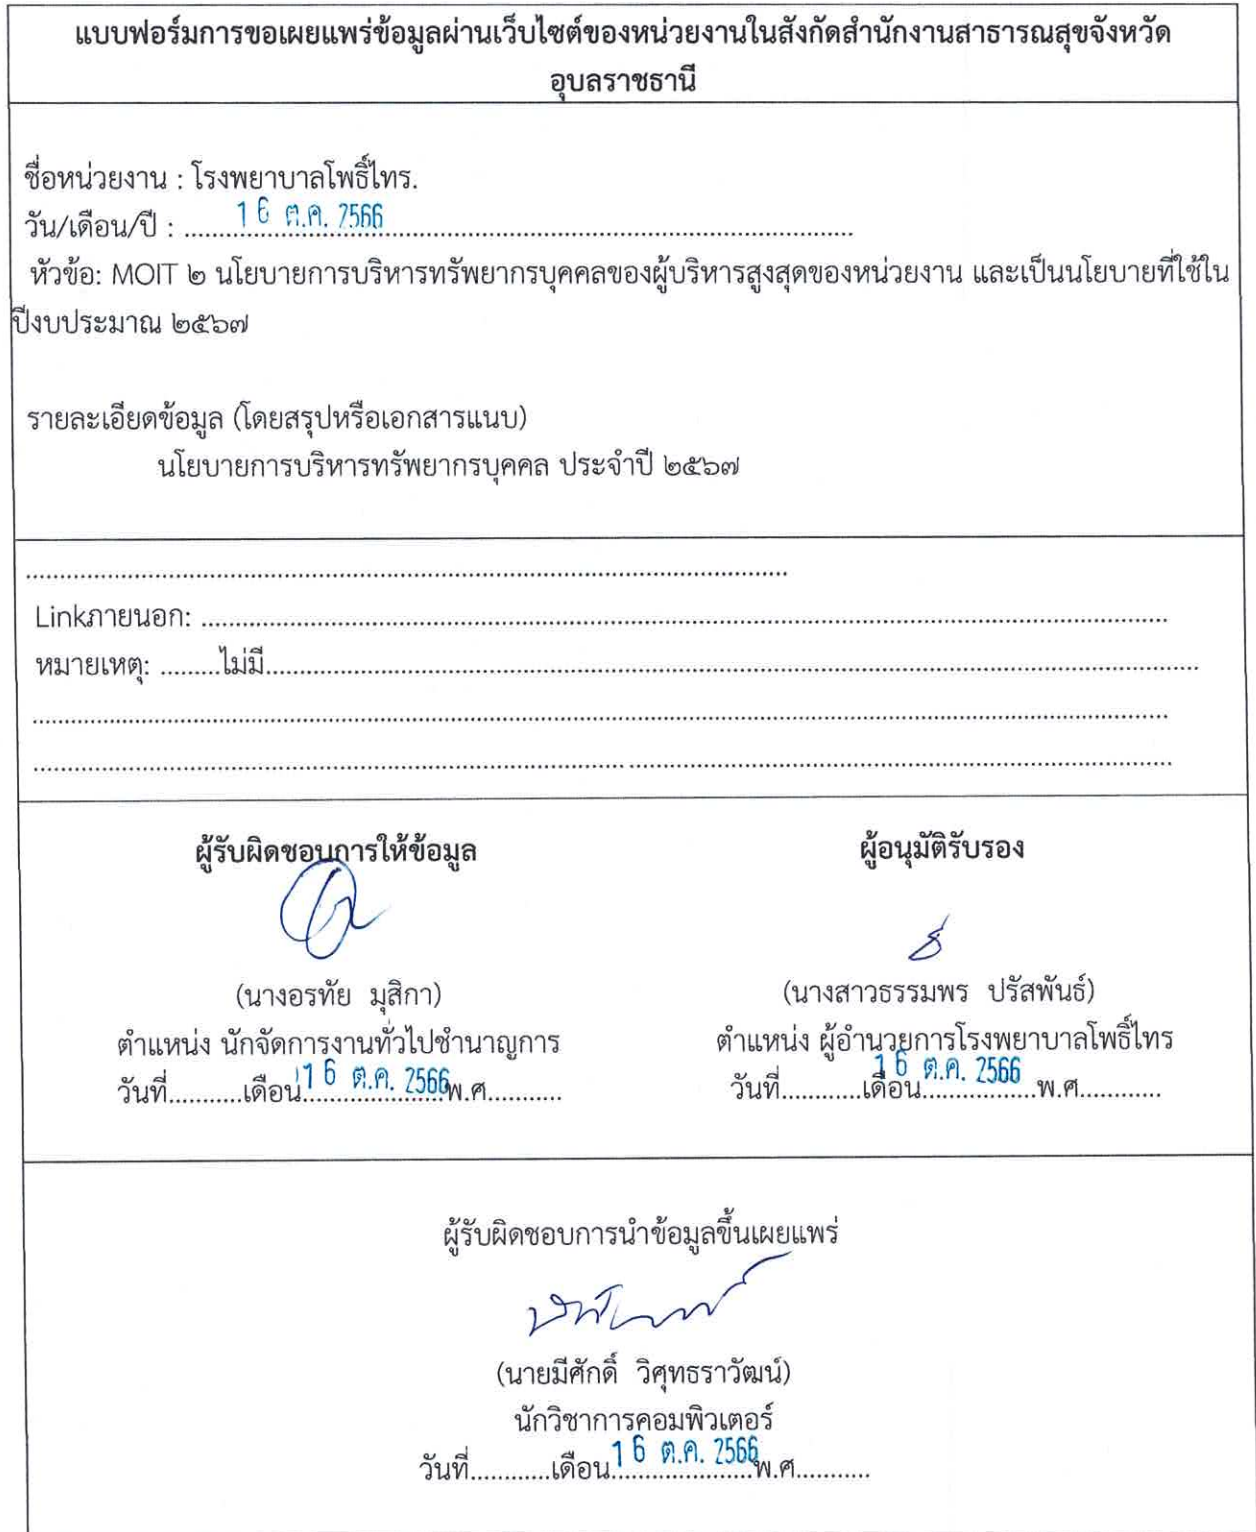 แบบฟอร์มการขอเผยแพร่ข้อมูลผ่านเว็บไซต์ของหน่วยงานในสังกัดสำนักงานสาธารณสุขจังหวัด
อุบลราชธานี
ชื่อหน่วยงาน : โรงพยาบาลโพธิ์ไทร.
วัน/เดือน/ปี : ........16 ต.ค. 2566........
หัวข้อ: MOIT ๒ นโยบายการบริหารทรัพยากรบุคคลของผู้บริหารสูงสุดของหน่วยงาน และเป็นนโยบายที่ใช้ใน
ปีงบประมาณ ๒๕๖๗
รายละเอียดข้อมูล (โดยสรุปหรือเอกสารแนบ)
นโยบายการบริหารทรัพยากรบุคคล ประจำปี ๒๕๖๗
Linkภายนอก: ........
หมายเหตุ: .........ไม่มี.........
ผู้รับผิดชอบการให้ข้อมูล
(นางอรทัย มุสิกา)
ตำแหน่ง นักจัดการงานทั่วไปชำนาญการ
วันที่...........เดือน 16 ต.ค. 2566 พ.ศ...........
ผู้อนุมัติรับรอง
(นางสาวธรรมพร ปรัสพันธ์)
ตำแหน่ง ผู้อำนวยการโรงพยาบาลโพธิ์ไทร
วันที่............เดือน 16 ต.ค. 2566 พ.ศ............
ผู้รับผิดชอบการนำข้อมูลขึ้นเผยแพร่
(นายมีศักดิ์ วิศุทธราวัฒน์)
นักวิชาการคอมพิวเตอร์
วันที่............เดือน 16 ต.ค. 2566 พ.ศ...........